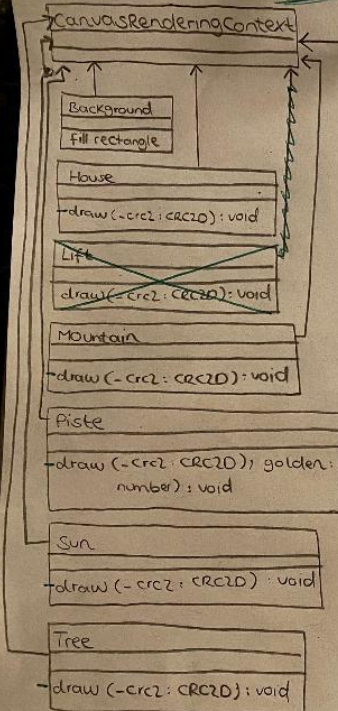 CanvasRenderingContext
Background
fill rectangle
House
-draw(-crc2: CRC2D): void
Lift
draw(-crc2: CRC2D): void
Mountain
-draw(-crc2: CRC2D): void
Piste
-draw(-crc2: CRC2D), golden:
number): void
Sun
-draw(-crc2: CRC2D): void
Tree
-draw(-crc2: CRC2D): void